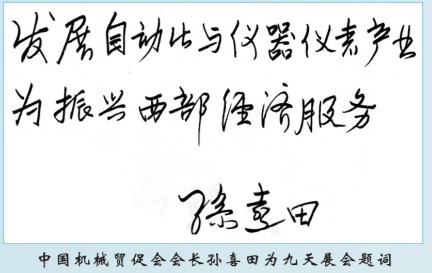 发展自动化与仪器仪表产业
为振兴西部经济服务
孙喜田
中国机械贸促会会长孙喜田为九天展会题词